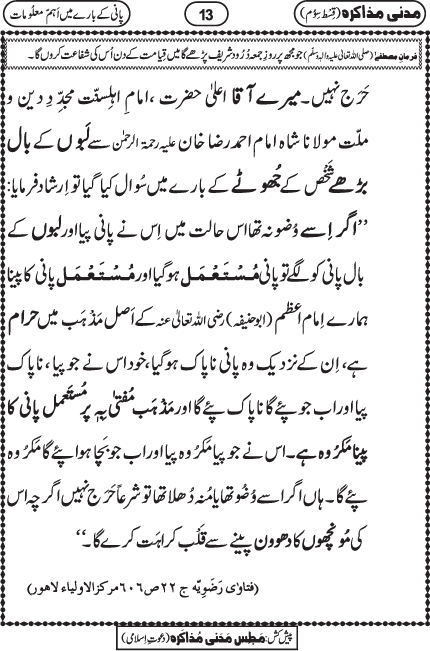 مدنی مذاکرہ (قسط سِوُم)
13
پانی کے بارے میں اَہَم معلومات
فرمانِ مصطفٰے (صلی اللہ تعالیٰ علیہ واٰلہٖ وسلم) جو مجھ پر روزِ جمعہ دُرود شریف پڑھے گا میں قیامت کے دن اُس کی شفاعت کروں گا۔
حَرَج نہیں۔ میرے آقا اعلیٰ حضرت ، امامِ اہلسنّت مجدِّدِ دین و
ملّت مولانا شاہ امام احمد رضا خان علیہ رحمۃ الرحمٰن سے لَبوں کے بال
بڑھے شَخْص کے جُھوٹے کے بارے میں سُوال کیا گیا تو اِرشاد فرمایا:
’’اگر اِسے وُضو نہ تھا اس حالت میں اِس نے پانی پیا اور لبوں کے
بال پانی کو لگے تو پانی مُسْتَعْمَل ہو گیا اور مُسْتَعْمَل پانی کا پینا
ہمارے اِمامِ اعظم (ابوحنیفہ) رضی اللہ تعالیٰ عنہ کے اَصل مَذہَب میں حرام
ہے، اِن کے نزدیک وہ پانی ناپاک ہو گیا، خود اس نے جو پیا، ناپاک
پیا اور اب جو پئے گا ناپاک پئے گا اور مَذہَبِ مُفتیٰ بِہٖ پر مُستَعمل پانی کا
پینا مَکرُوہ ہے۔ اس نے جو پیا مَکرُوہ پیا اور اب جو بَچا ہوا پئے گا مَکرُوہ
پئے گا۔ ہاں اگر اسے وُضُو تھا یا مُنہ دُھلا تھا تو شرعاً حَرَج نہیں اگرچِہ اس
کی مُونچھوں کا دھووَن پینے سے قَلْب کراہَت کرے گا۔‘‘
(فتاوٰی رَضَوِیّہ ج ۲۲ ص ۶۰۶ مرکز الاولیاء لاہور)
پیش کش: مَجلِس مَدَنی مُذاکَرہ (دعوتِ اسلامی)